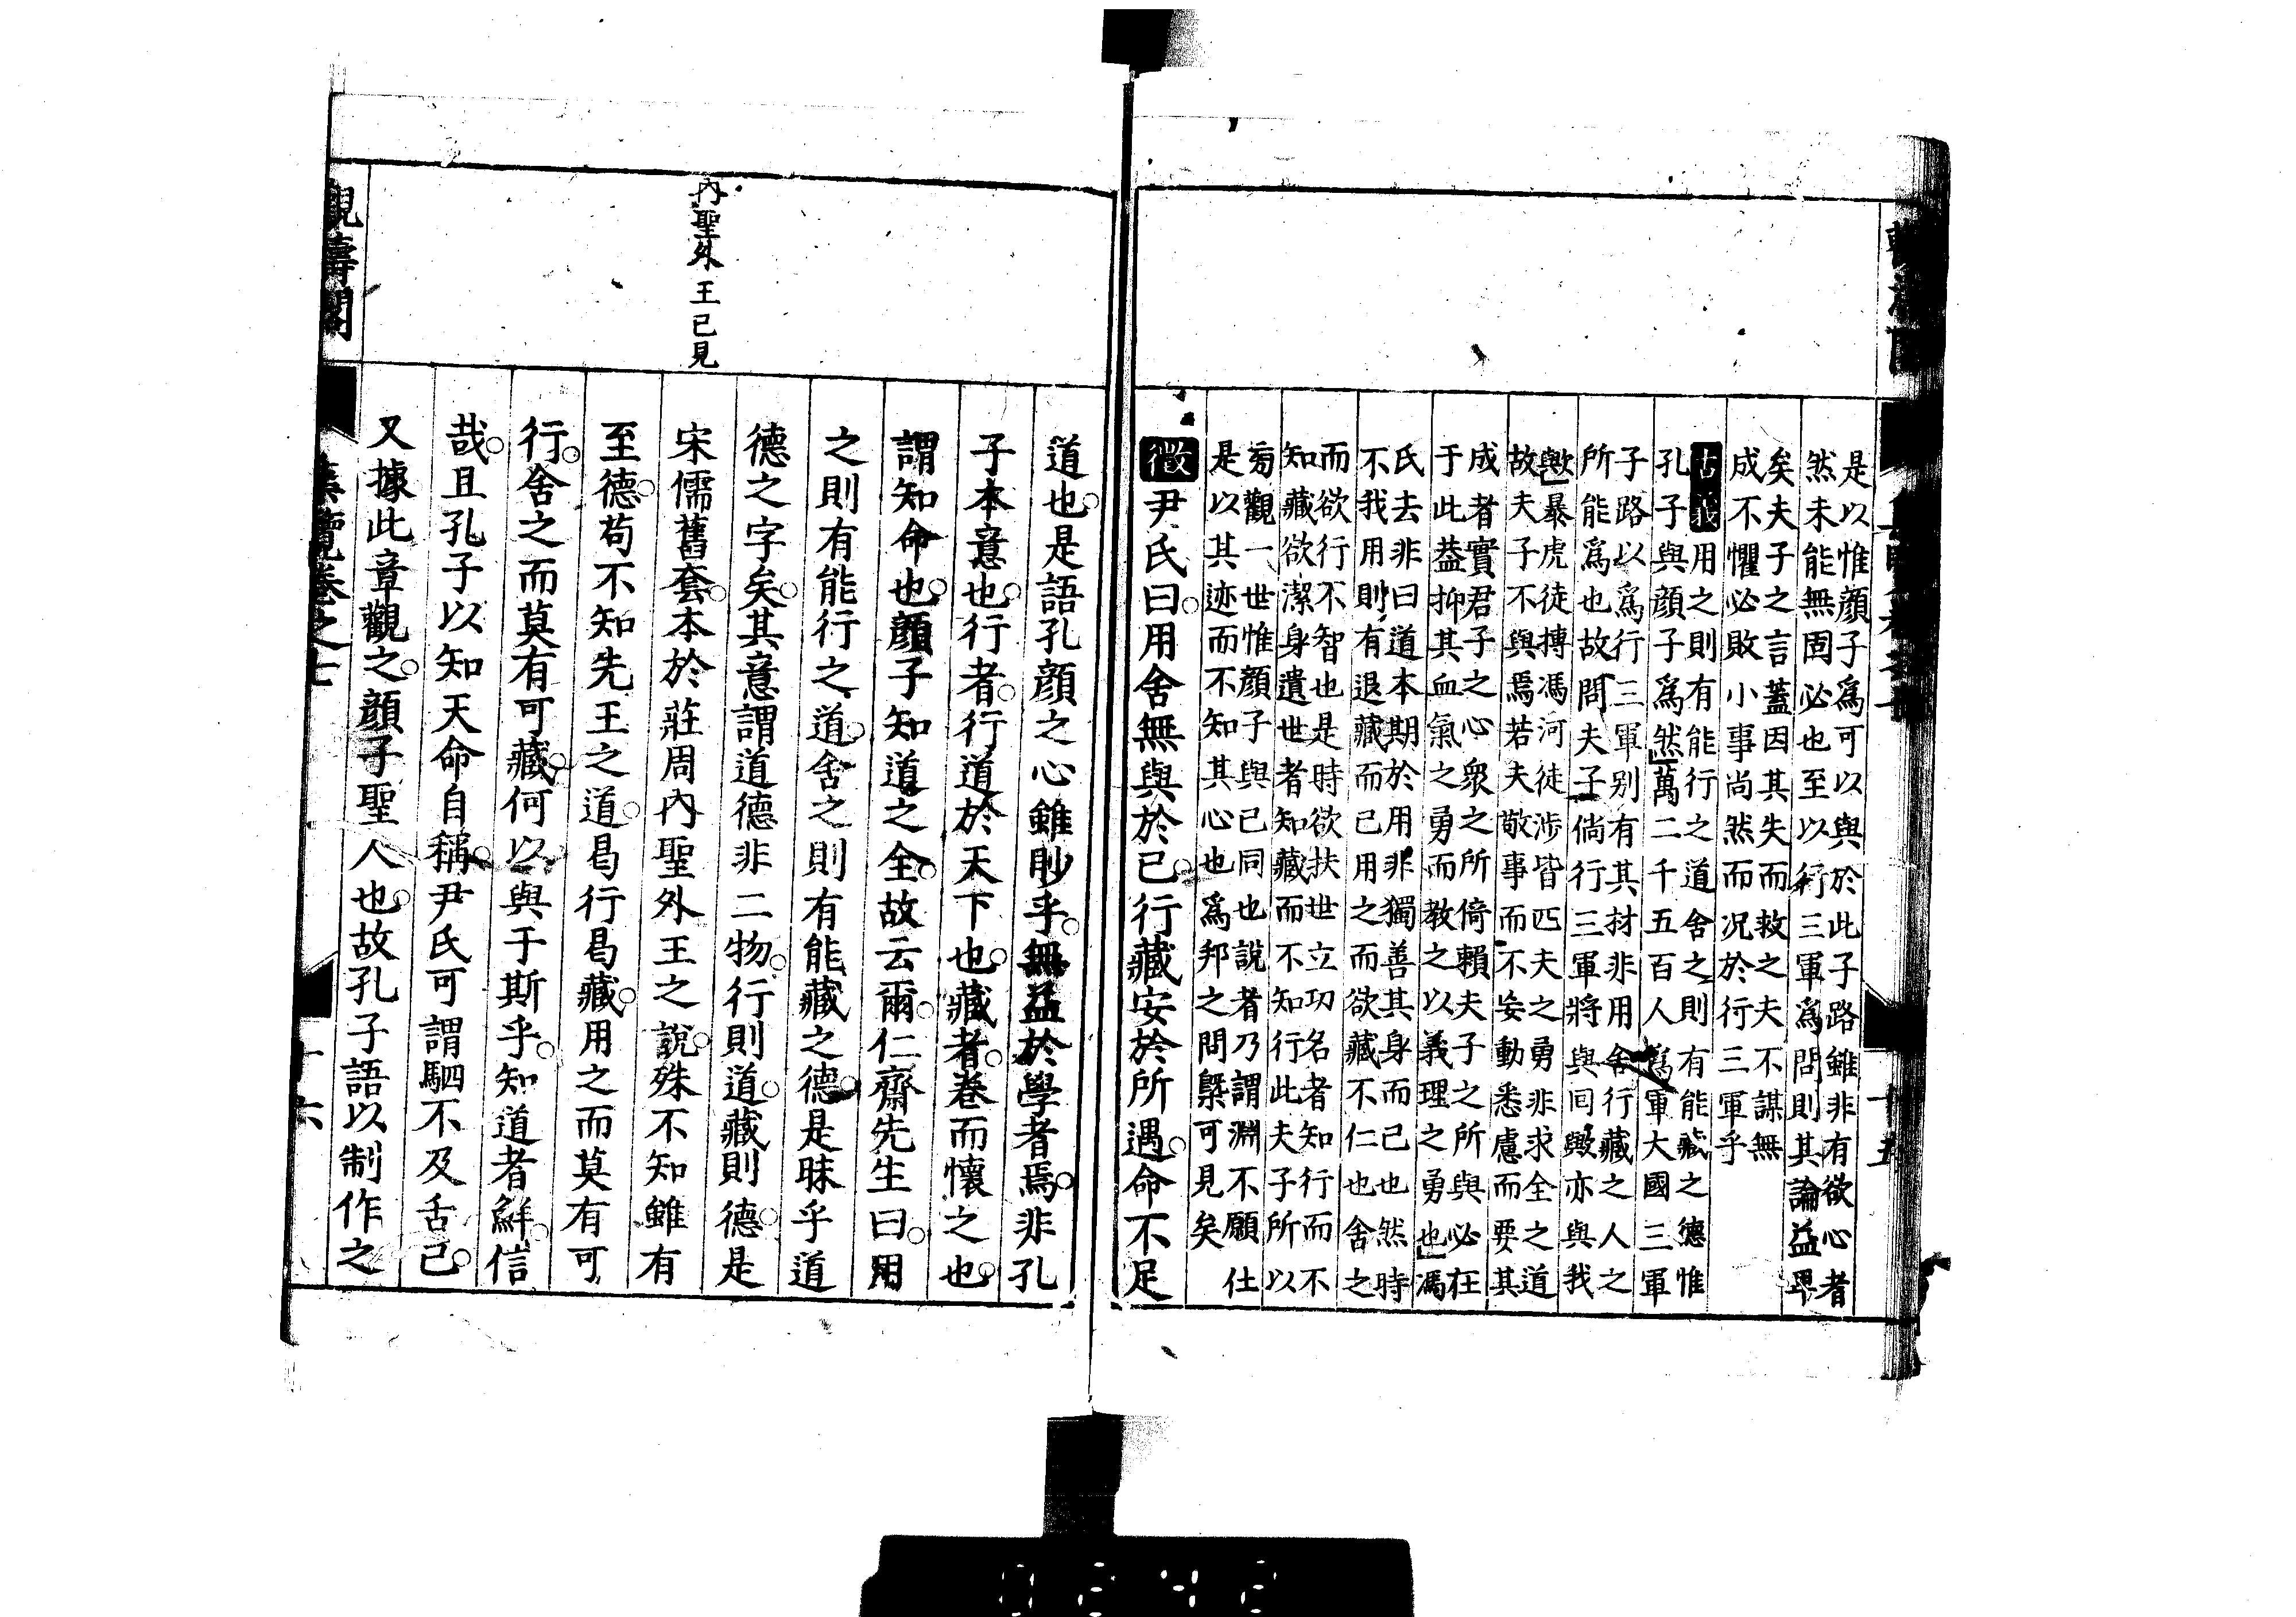 是以惟顔子爲可以與於此子路雖非有欲心者
然未能無固必也至以行三軍爲問則其論益卑
矣夫子之言蓋因其失而救之夫不謀無
成不懼必敗小事尚然而况於行三軍乎
古義用之則有能行之道舍之則有能藏之德惟
孔子與顔子爲然萬二千五百人爲軍大國三軍
子路以爲行三軍别有其材非用舍行藏之人之
所能爲也故問夫子倘行三軍將與囘歟亦與我
歟暴虎徒搏馮河徒涉皆匹夫之勇非求全之道
故夫子不與焉若夫敬事而不妄動悉慮而要其
成者實君子之心衆之所倚賴夫子之所與必在
于此蓋抑其血氣之勇而教之以義理之勇也馮
氏去非曰道本期於用非獨善其身而已也然時
不我用則有退藏而已用之而欲藏不仁也舍之
而欲行不智也是時欲扶世立功名者知行而不
知藏欲潔身遺世者知藏而不知行此夫子所以
㫄觀一世惟顔子與己同也說者乃謂淵不願仕
是以其迹而不知其心也爲邦之問槩可見矣
徵尹氏曰用舍無與於已行藏安於所遇命不足
道也是語孔顔之心雖眇乎無益於學者焉非孔
子本意也行者行道於天下也藏者卷而懷之也
謂知命也顔子知道之全故云爾仁齋先生曰用
之則有能行之道舍之則有能藏之德是昧乎道
德之字矣其意謂道德非二物行則道藏則德是
宋儒舊套本於莊周內聖外王之說殊不知雖有
至德苟不知先王之道曷行曷藏用之而莫有可
行舍之而莫有可藏何以與于斯乎知道者鮮信
哉且孔子以知天命自稱尹氏可謂駟不及舌已
又據此章觀之顔子聖人也故孔子語以制作之
內聖外王已見
觀濤閣
集覽卷之七
十六